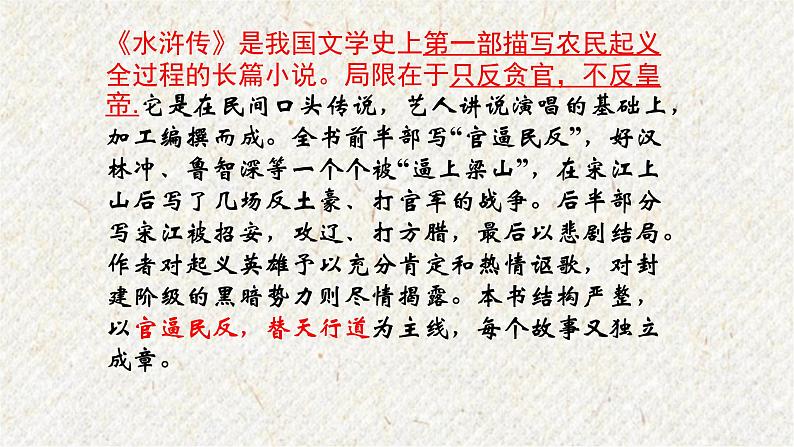 《水浒传》是我国文学史上第一部描写农民起义
全过程的长篇小说。局限在于只反贪官，不反皇
帝.它是在民间口头传说，艺人讲说演唱的基础上，
加工编撰而成。全书前半部写“官逼民反”，好汉
林冲、鲁智深等一个个被“逼上梁山”，在宋江上
山后写了几场反土豪、打官军的战争。后半部分
写宋江被招安，攻辽、打方腊，最后以悲剧结局。
作者对起义英雄予以充分肯定和热情讴歌，对封
建阶级的黑暗势力则尽情揭露。本书结构严整，
以官逼民反，替天行道为主线，每个故事又独立
成章。